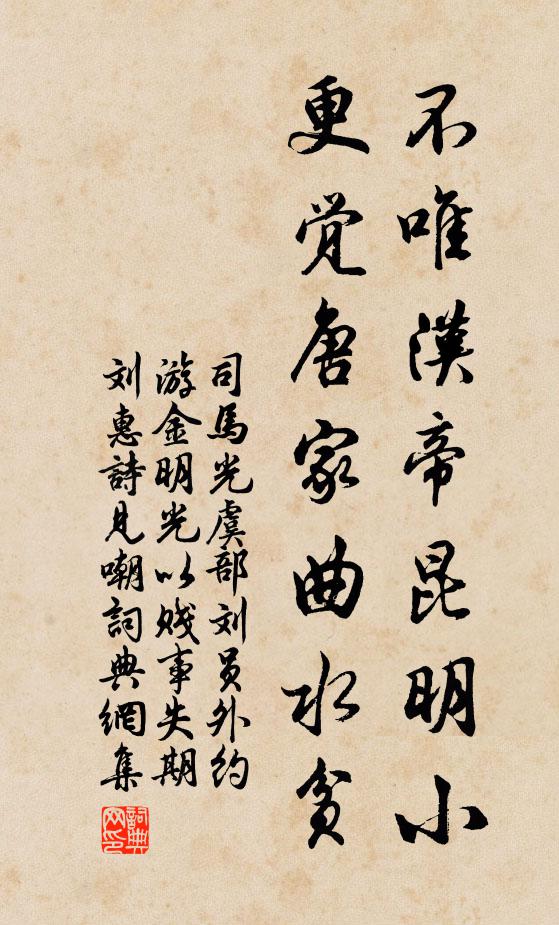 不唯漢帝昆明小
更觉唐家曲水贫
司馬光虞部刘员外约
游金明光以贱事失期
刘惠詩见嘲詞典網集
詞典网印